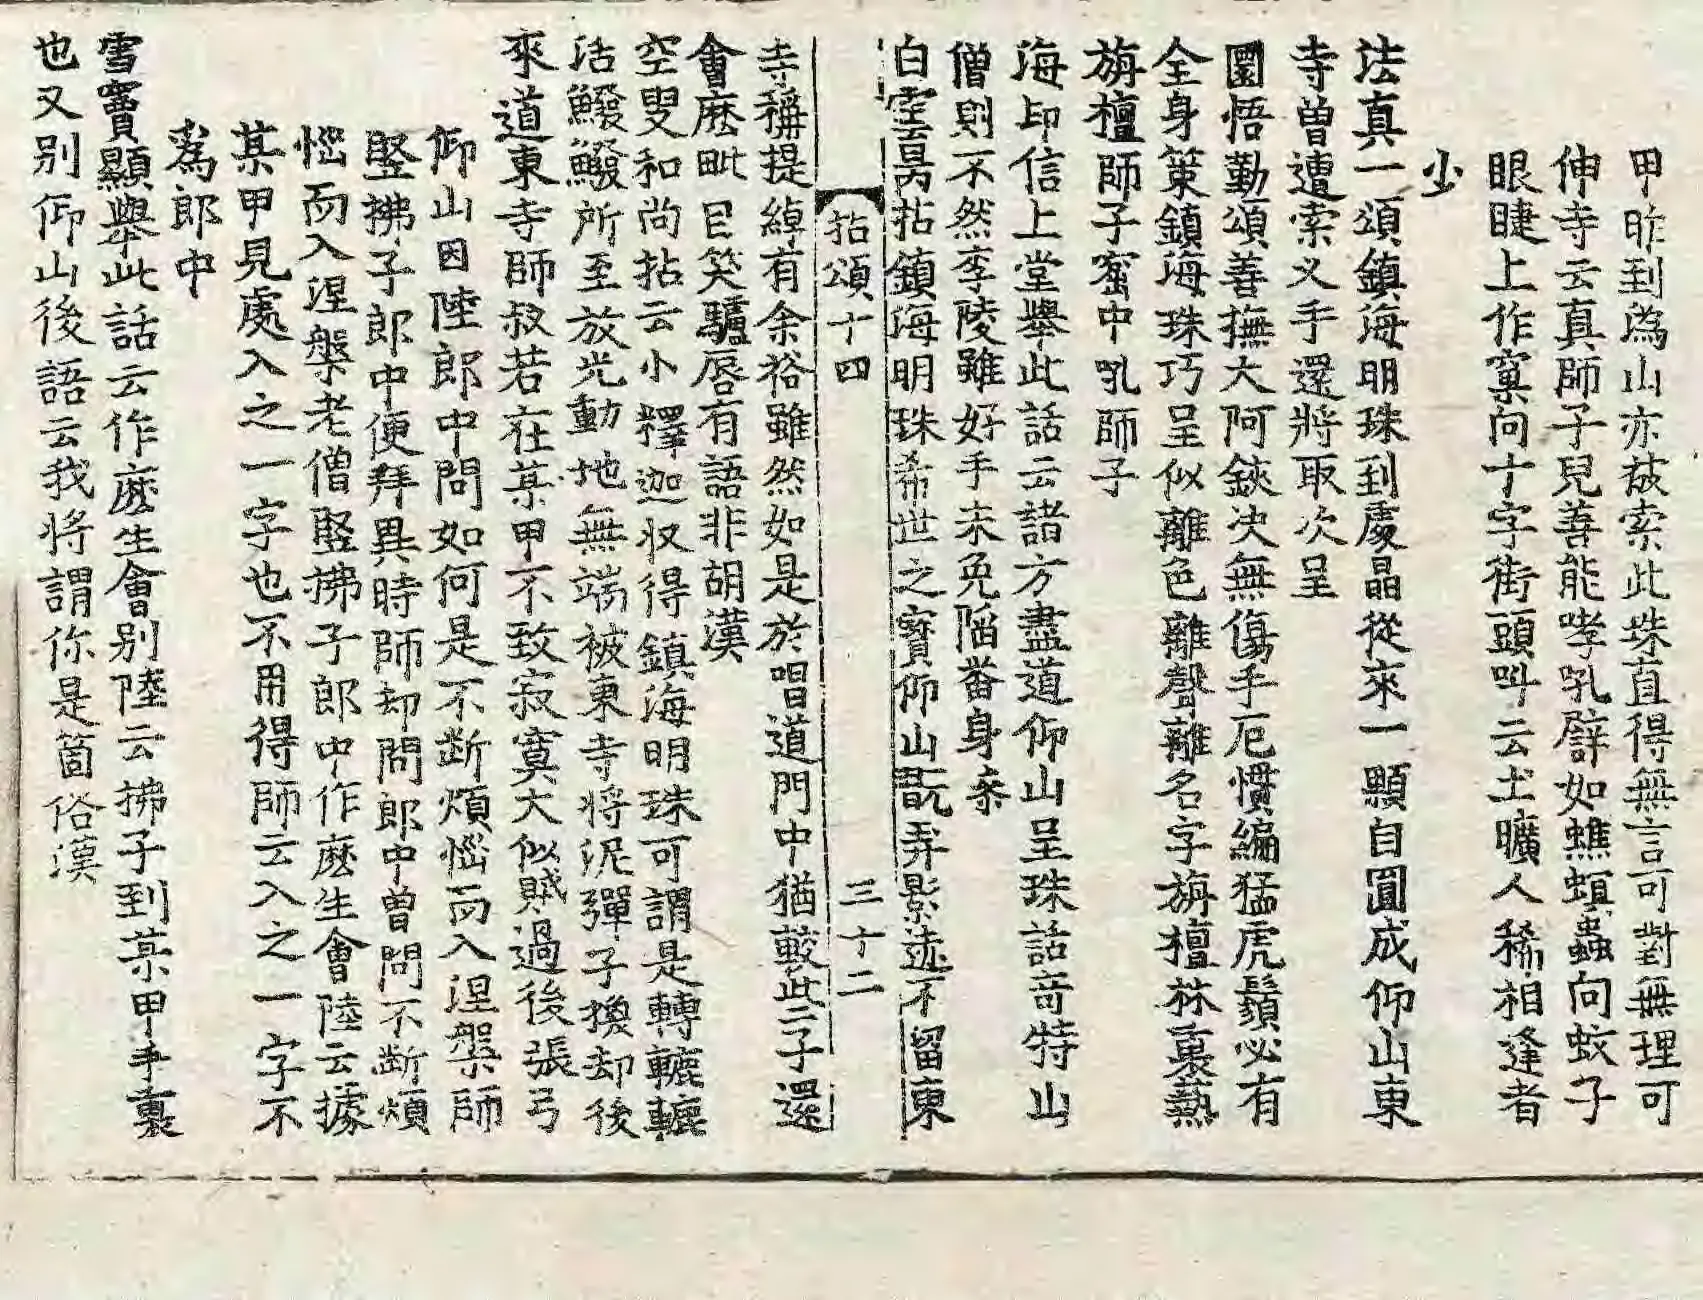 甲昨到溈山亦被索此珠直得無言可對無理可
伸寺云真師子兒善能哮吼譬如蟭螟蟲向蚊子
眼睫上作窠向十字街頭叫云土曠人稀相逢者
少
法真一頌鎮海明珠到處晶從來一顆自圓成仰山東
寺曾遭索义手還將取次呈
圜悟勤頌善撫大阿鋏決無傷手厄慣編猛虎鬚必有
全身策鎮海珠巧呈似離色離聲離名字旃檀林裏熱
旃檀師子窟中吼師子
海印信上堂舉此話云諸方盡道仰山呈珠話奇特山
僧則不然李陵雖好手未免陥番身来
白雲昺拈鎮海明珠希世之寳仰山旣弄影迹不留東
拈頌十四 三十二
寺稱提綽有余裕雖然如是於唱道門中猶較此二子還
會麽毗目笑驢唇有語非胡漢
空叟和尚拈云小釋迦收得鎮海明珠可謂是轉轆轆
活鱍鱍所至放光動地無端被東寺將泥彈子換却後
來道東寺師叔若在某甲不致寂寞大似賊過後張弓
仰山因陸郎中問如何是不断煩惱而入涅槃師
竪拂子郎中便拜異時師却問郎中曾問不断煩
惱而入涅槃老僧竪拂子郎中作麽生會陸云據
某甲見處入之一字也不用得師云入之一字不
爲郎中
雪竇顯舉此話云作麽生會別陸云拂子到某甲手裏
也又別仰山後語云我将謂你是箇俗漢